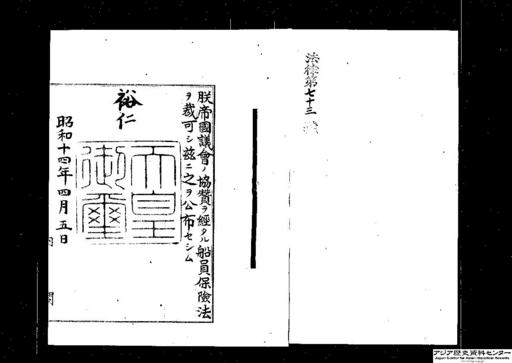 法律第七十三號
朕帝國議會ノ協賛ヲ經タル船員保險法
ヲ裁可シ茲ニ之ヲ公布セシム
裕仁
天皇
御璽
昭和十四年四月五日
アジア歴史資料センター
Japan Center for Asian Historical Records